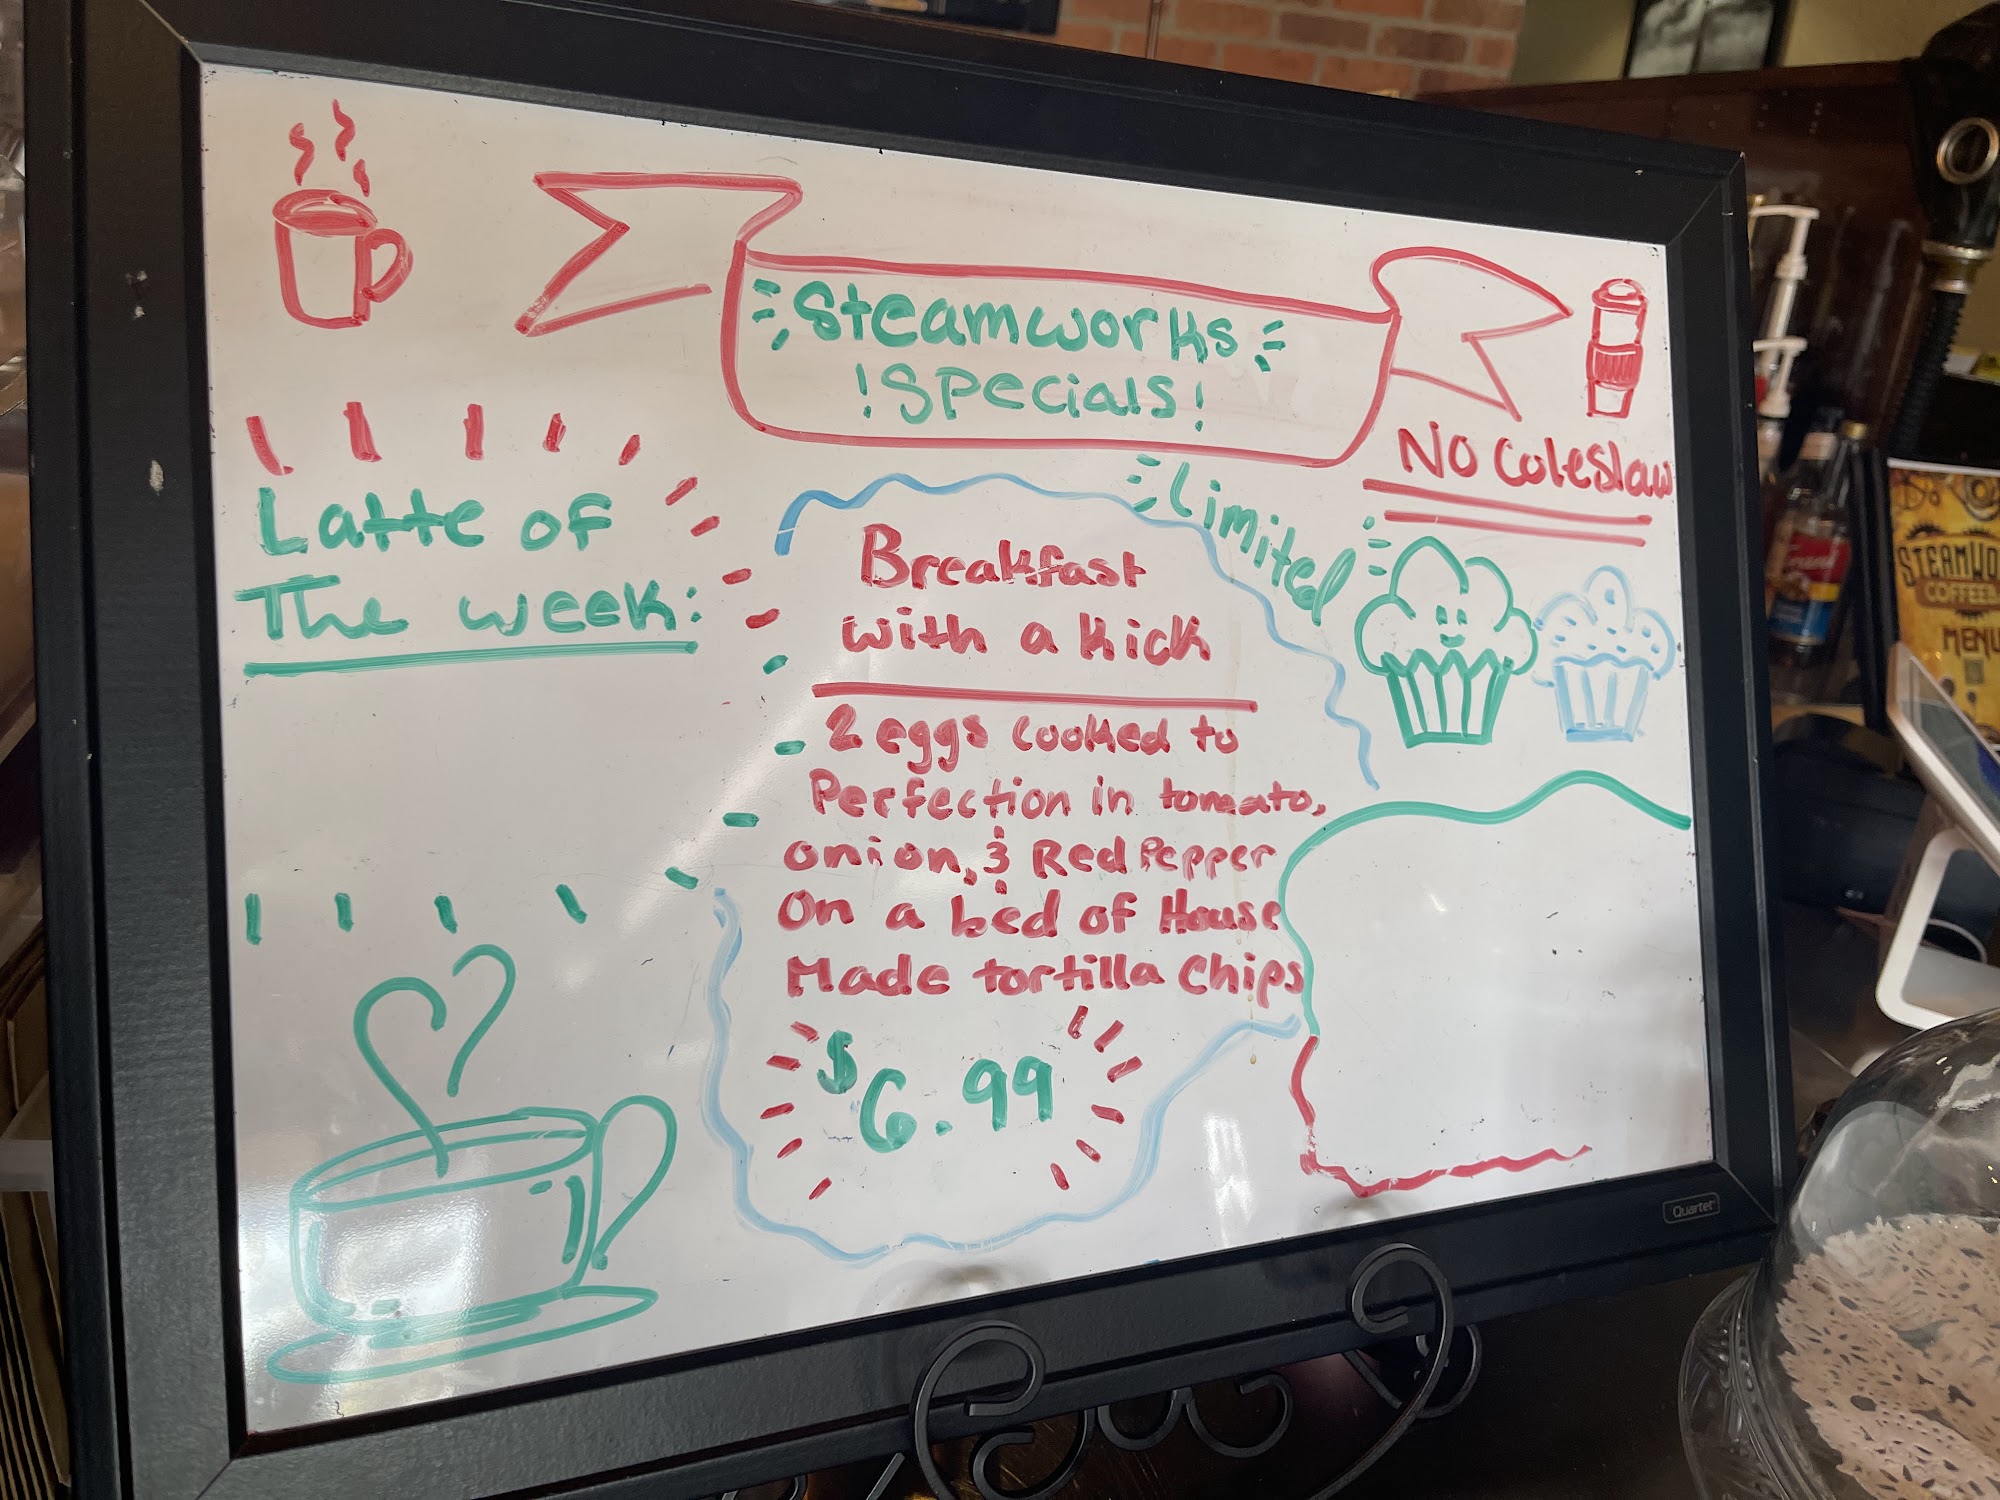 Steamworks
!Specials!
No Coleslaw
Limited
Latte of
The week:
Breakfast
with a kick
2 eggs cooked to
Perfection in tomato,
onion, & Red Pepper
On a bed of House
Made tortilla Chips
$6.99
STEAMWO
COFFEE
MENU
Quartet